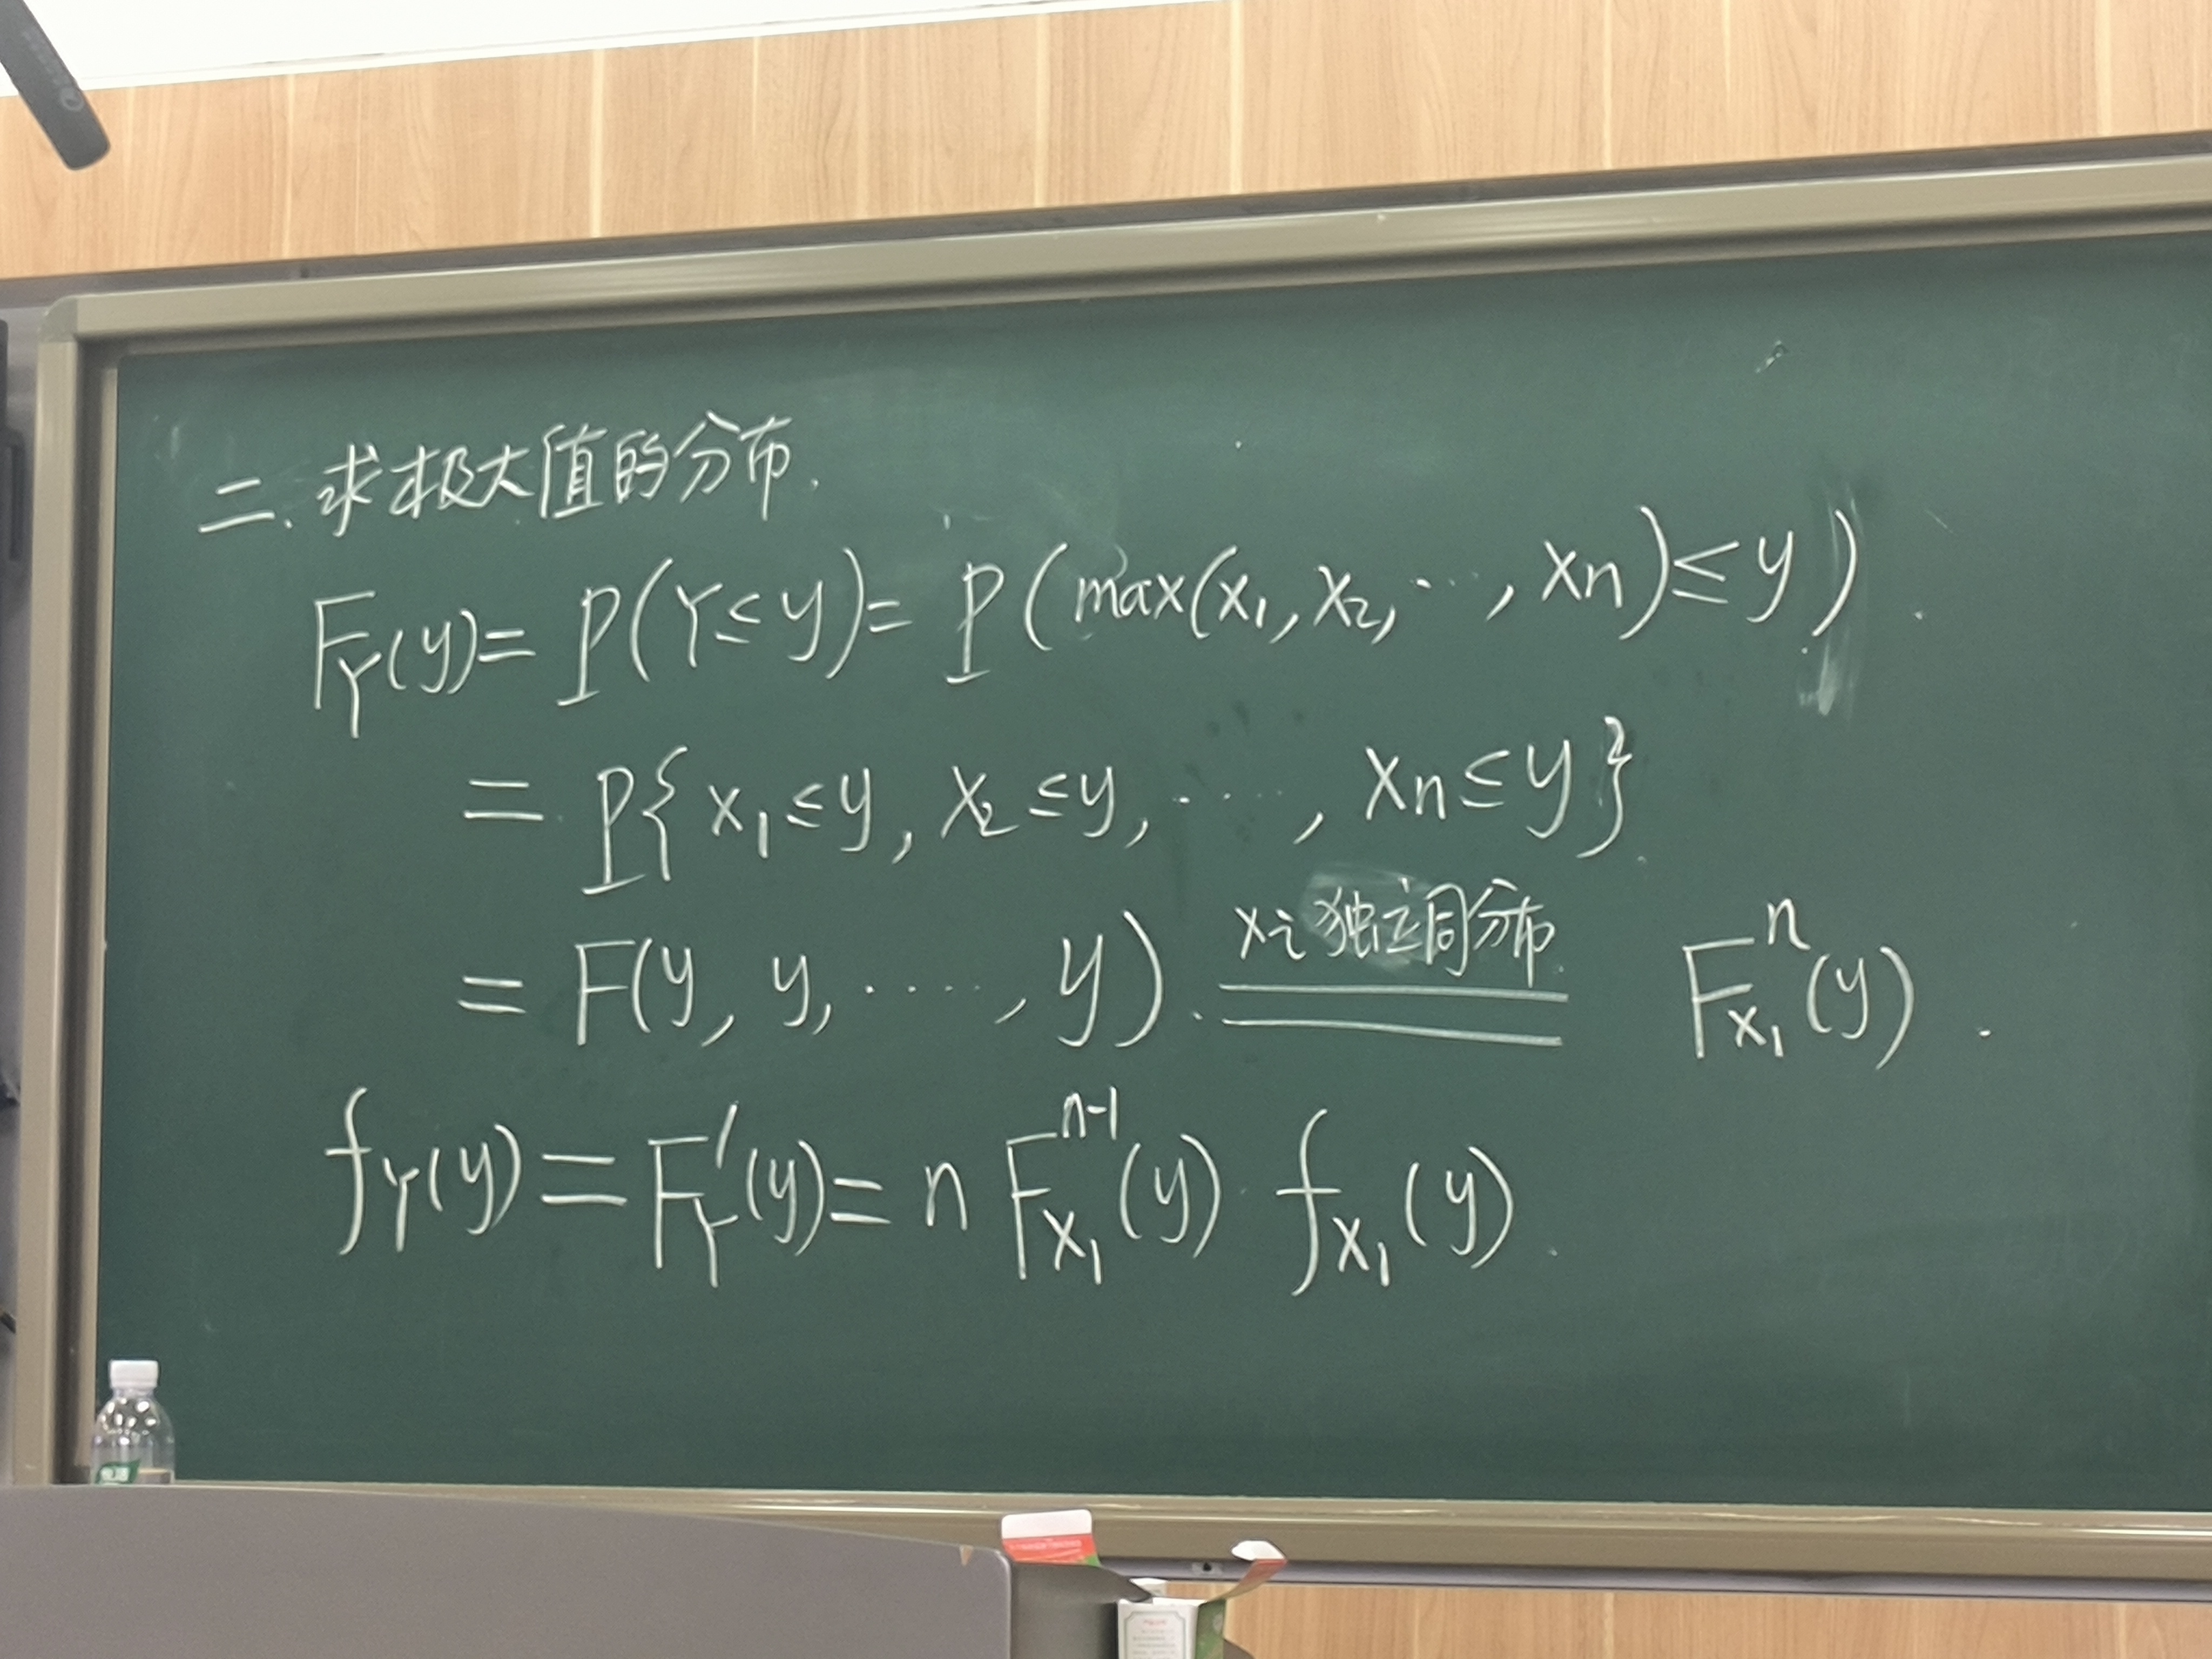 二.求极大值的分布.
F_Y(y)=P(Y≤y)=P(max(x₁,x₂,…,xₙ)≤y).
=P{x₁≤y,x₂≤y,…,xₙ≤y}
=F(y,y,…,y). xᵢ独立同分布. F_{X₁}^n(y).
f_Y(y)=F_Y'(y)=nF_{X₁}^{n-1}(y)·f_{X₁}(y).